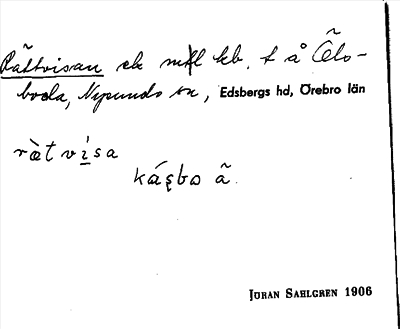 Rättvisan ek mfl lkb. t å Öls-
boda, Nysunds sn, Edsbergs hd, Örebro län
rὰtvísa
kás̨bo ã.
JÖRAN SAHLGREN 1906